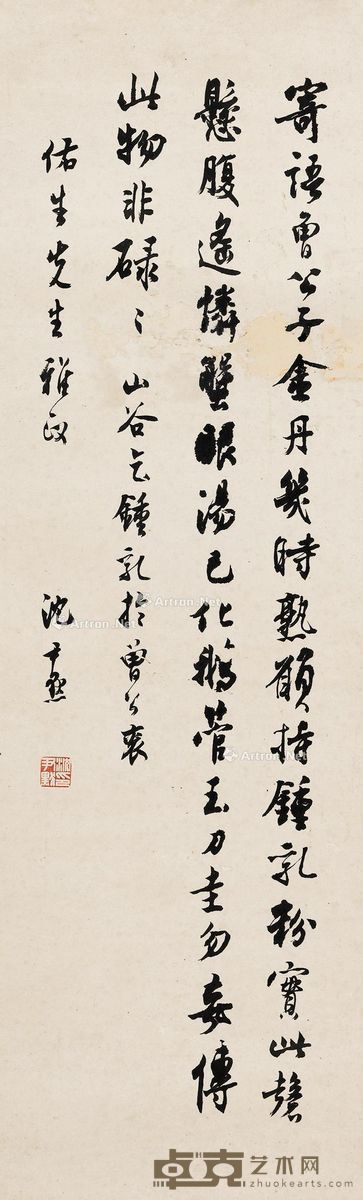 寄語曾公子金丹幾時熟願持鍾乳粉實此磬
懸腹遙憐蟹眼湯已化鵝管玉刀圭勿妄傳
此物非碌〻 山谷乞鍾乳於曾公袞
佑生先生雅政 沈尹默
Artron.Net
Artron.Net
Artron.Net
Artron.Net
卓克艺术网
zhuokearts.com